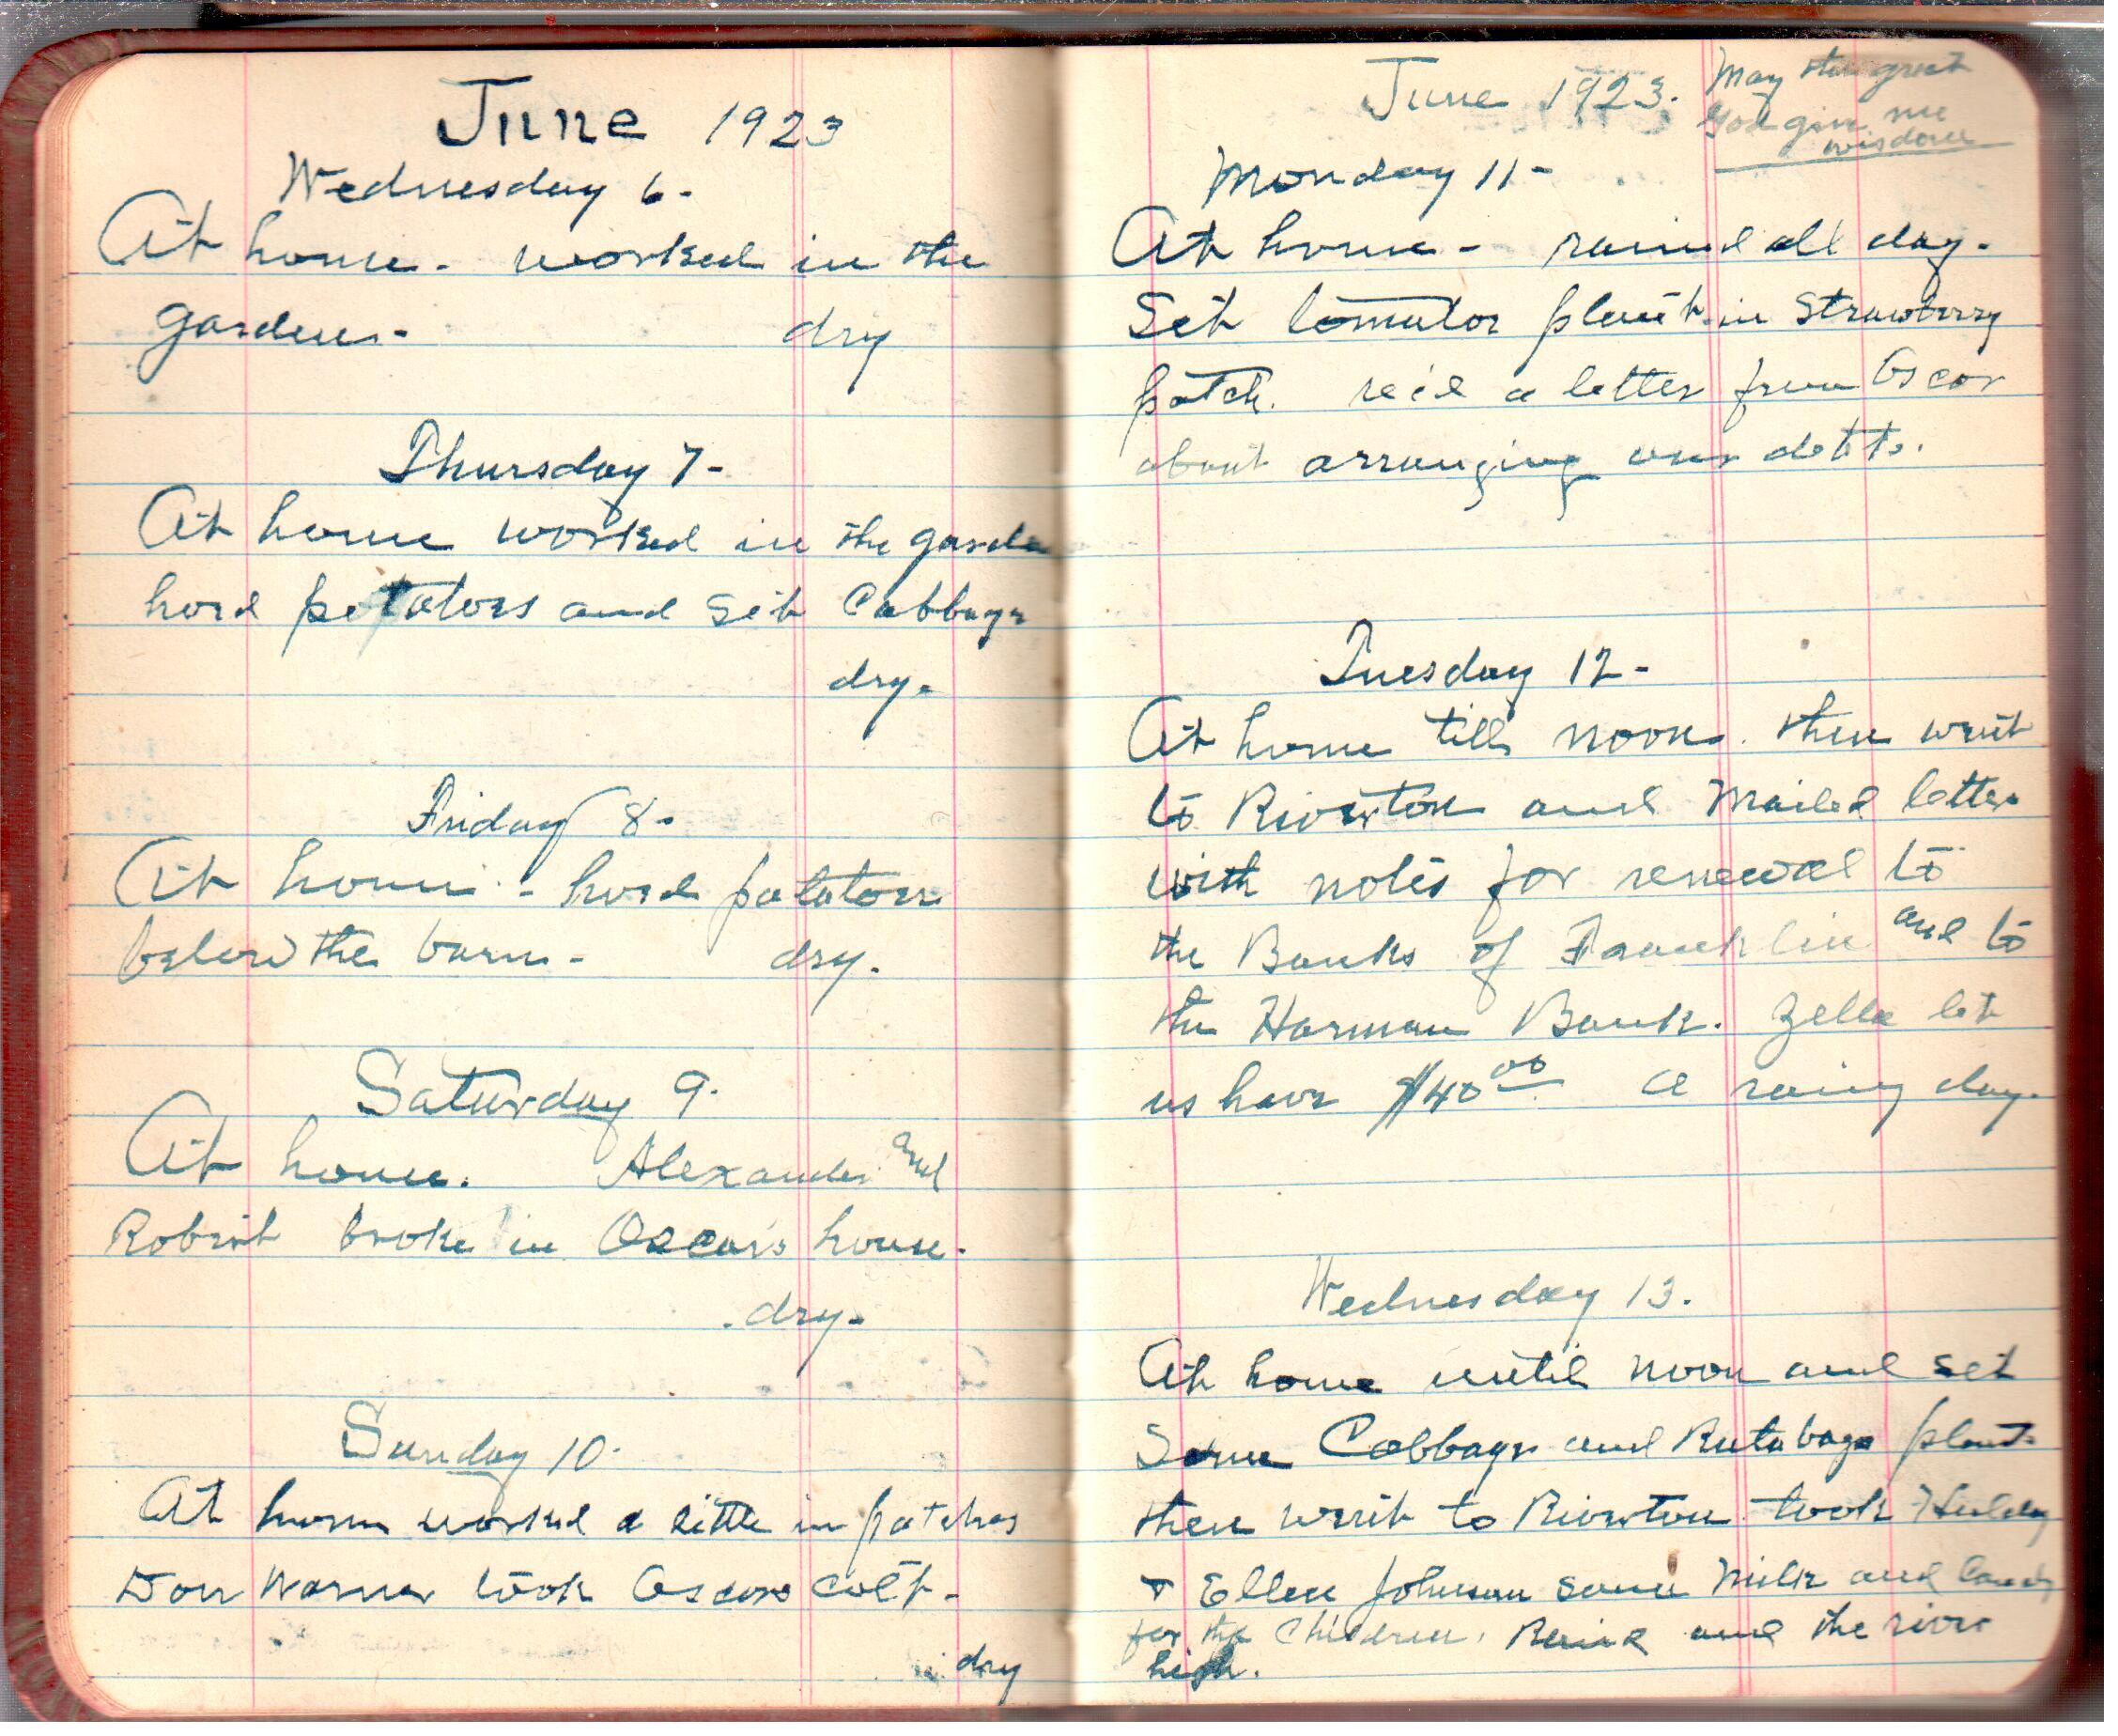 June 1923
Wednesday 6-
At home - worked in the
garden - dry
Thursday 7-
At home worked in the garden
hoed potatoes and set Cabbage
dry.
Friday 8.
At home - hoed potatoes
below the barn - dry.
Saturday 9.
At home. Alexander and
Robert broke in Oscar's house.
dry.
Sunday 10.
At home worked a little in patches
Don Warner took Oscars colt -
dry
June 1923. May the great
God give me
wisdom
Monday 11-
At home - rained all day.
Set tomatoe plants in Strawberry
patch. rec'd a letter from Oscar
about arranging our debts.
Tuesday 12-
At home till noon. then went
to Riverton and Mailed letters
with notes for renewal to
the Banks of Franklin and to
the Harman Bank. Zella let
us have $40.00 A rainy day.
Wednesday 13.
At home until noon and set
Some Cabbage and Rutabaga plants
then went to Riverton took Hulday
+ Ellen Johnson some Milk and Candy
for the Children. Raind and the river
high.